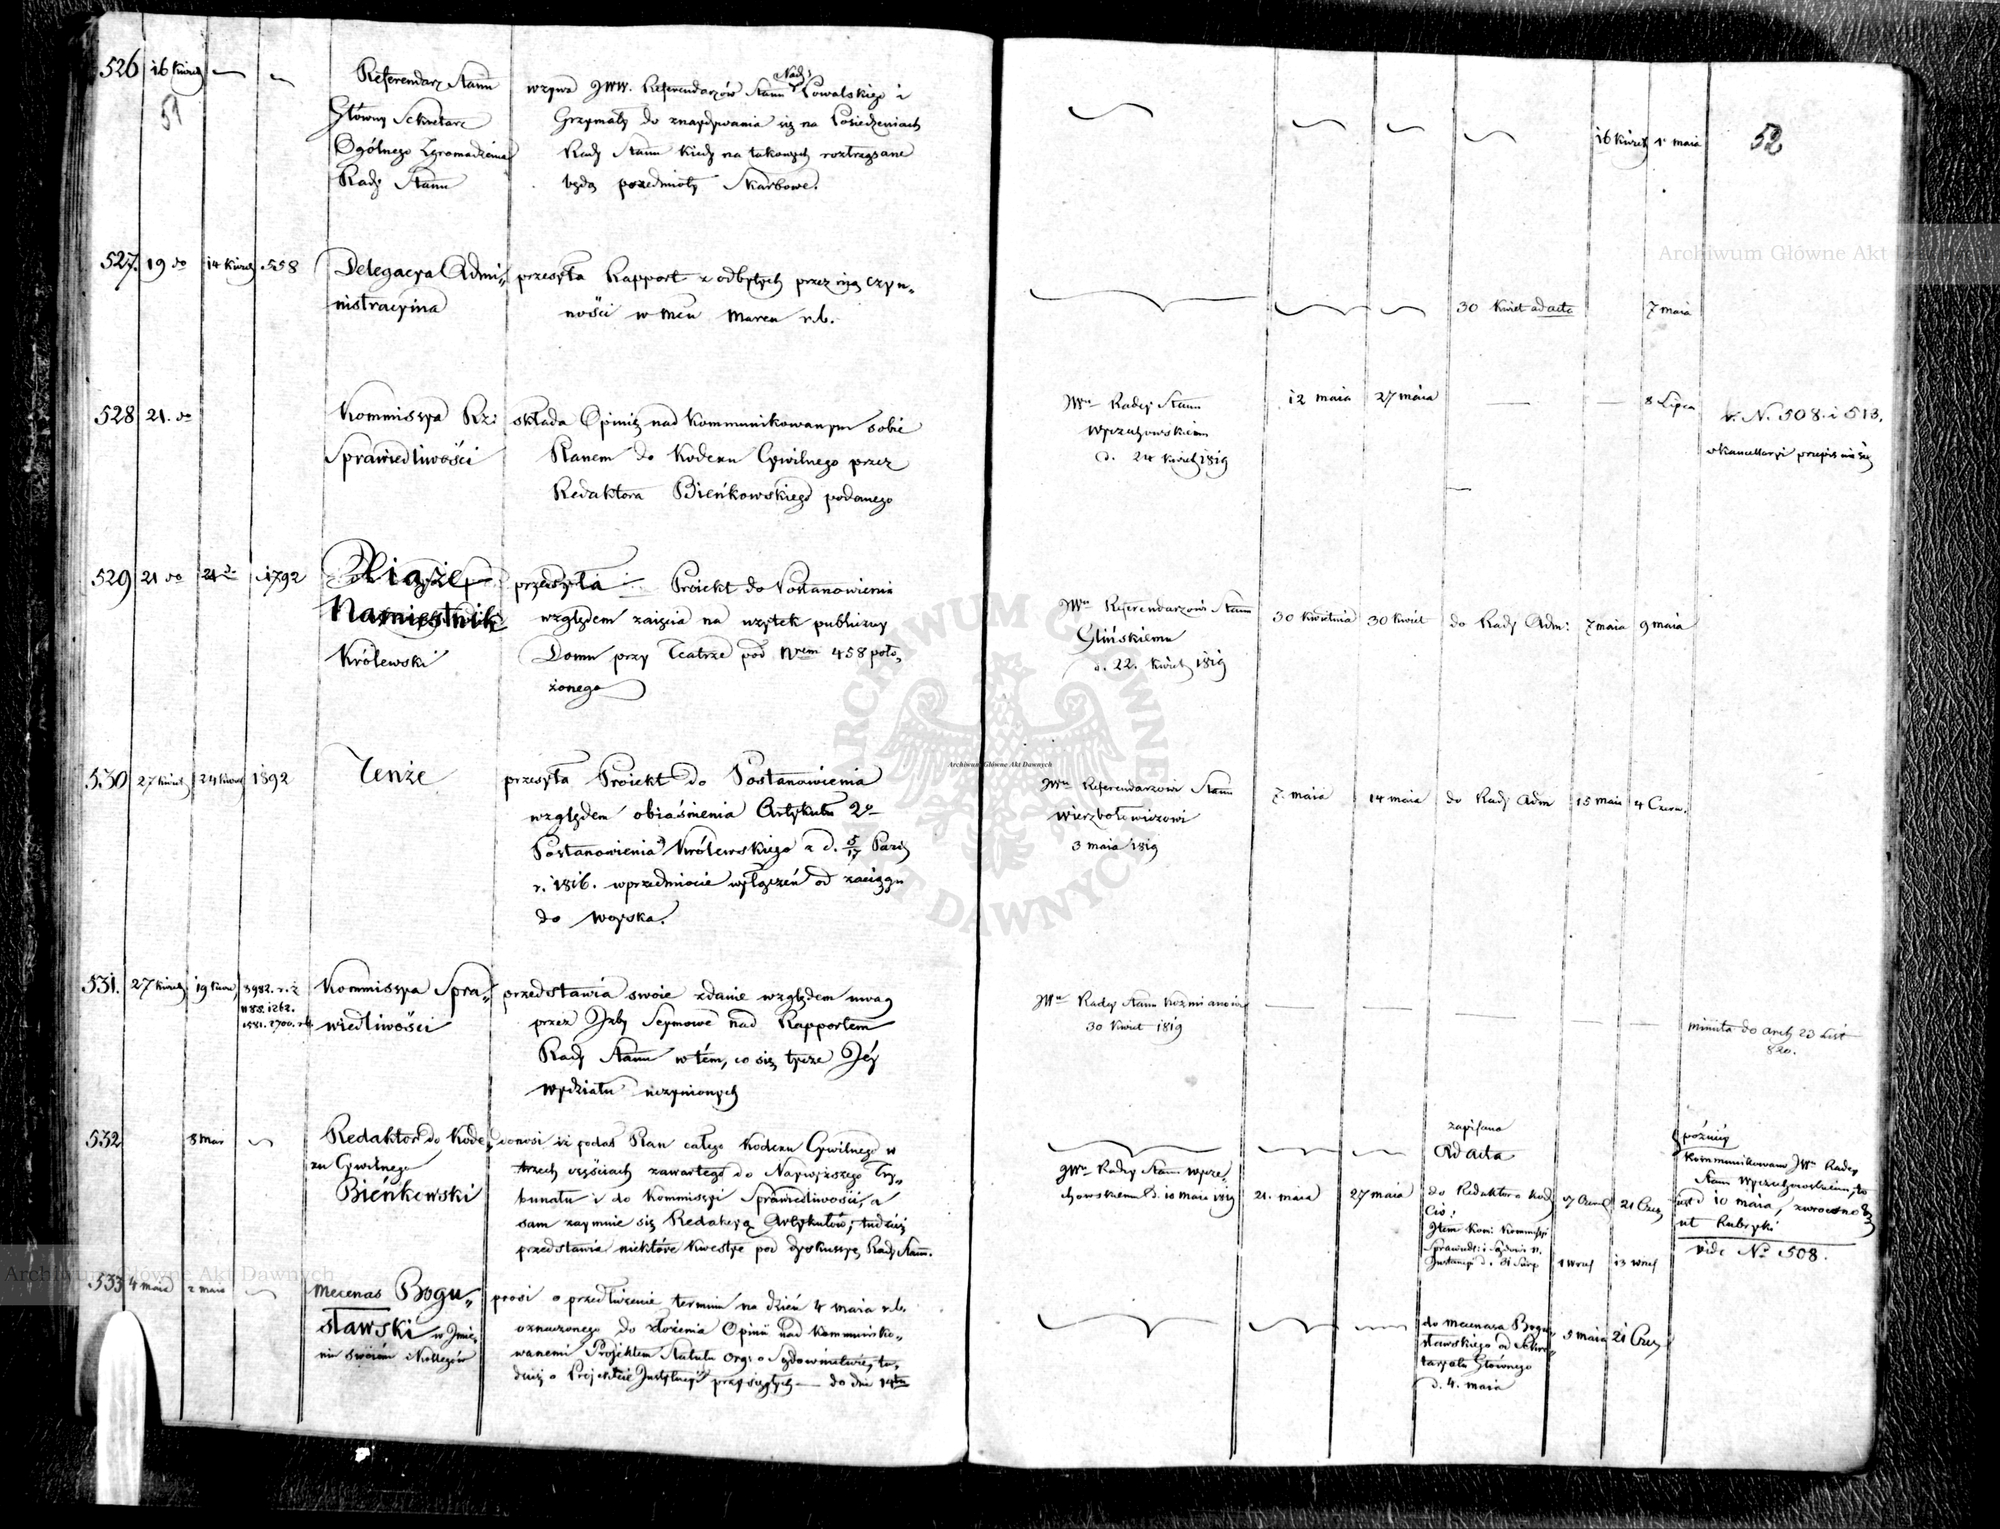 51
52
526 16 kwiet
Referendarz Stanu
Główny Sekretarz
Ogólnego Zgromadzenia
Rady Stanu
wzywa JWW. Referendarzów Stanu Nad: Kowalskiego i
Grzymałę do znaydywania się na Posiedzeniach
Rady Stanu kiedy na takowych roztrząsane
będą przedmioty Skarbowe.
16 kwiet 1 maia
527. 19 do 14 kwiet 558
Delegacya Admi„
nistracyina
przesyła Rapport z odbytych przez nią czyn„
ności w mcu Marcu r.b.
30 kwiet ad acta 7 maia
528 21. do
Kommissya Rz:
Sprawiedliwości
składa Opinią nad kommunikowanym sobie
Planem do Kodexu Cywilnego przez
Redaktora Bieńkowskiego podanego
JWu Radcy Stanu
Wyczechowskiemu
d. 24 kwiet 1819
12 maia 27 maia 8 Lipca
v. N. 508. i 513.
529 21 do 21 do 1792
Xiąże
Namiestnik
Królewski
przesyła Proiekt do Postanowienia
względem zaięcia na użytek publiczny
Domu przy Teatrze pod Nrem 458 poło„
żonego
JWu Referendarzowi Stanu
Glińskiemu
d. 22. kwiet 1819
30 kwietnia 30 kwiet do Rady Adm: 7 maia 9 maia
530 27 kwiet 24 kwiet 1892
Tenże
przesyła Proiekt do Postanowienia
względem obiaśnienia Artykułu 2o
Postanowienia Królewskiego z d. 5/17 Paźd
r. 1816. w przedmiocie wyłączeń od zaciągu
do woyska.
JWu Referendarzowi Stanu
Wierzbołowiczowi
3 maia 1819
7. maia 14 maia do Rady Adm 15 maia 4 Czerw.
531. 27 kwiet 19 kwiet
Kommissya Spra„
wiedliwości
przedstawia swoie zdanie względem uwag
przez Izby Seymowe nad Rapportem
Rady Stanu w tém, co się tycze Jéy
Wydziału uczynionych
JWu Radcy Stanu Koźmianowi
30 kwiet 1819
minuta do Arch 23 List
820.
532 8 Mar
Redaktor do Kode„
xu Cywilnego
Bieńkowski
donosi iż podał Plan całego Kodexu Cywilnego w
trzech częściach zawartego do Naywyższego Try„
bunału i do Kommissyi Sprawiedliwości, a
sam zaymuie się Redakcyą Artykułów; tudzież
przedstawia niektóre kwestye pod dyskussyą Rady Stanu.
JWu Radcy Stanu Wycze„
chowskiemu d. 10 maia 1819
21. maia 27 maia
zapisana
Ad acta
do Redaktora Kod
Civ:
21 Czer
później
kommunikowano JWu Radcy
Stanu Wyczechowskiemu,
d 10 maia, zwrócono
ut Rubryki
vide No 508.
533 4 maia 2 maia
Mecenas Bogu„
sławski w Imie„
niu swoiém i Kollegów
prosi o przedłużenie terminu na dzień 4 maia r.b.
oznaczonego do złożenia Opinii nad kommuniko„
wanemi Projektem Statutu Org: o Sądownictwie, tu„
dzież o Projekcie Instytucyi przysięgłych — do dnia 14tu
do Mecenasa Bogu„
sławskiego od Sekre„
taryatu Głównego
d. 4. maia
5 maia 21 Czer
Archiwum Główne Akt Dawnych
Archiwum Główne Akt Dawnych
Archiwum Główne Akt Dawnych
ARCHIWUM GŁÓWNE AKT DAWNYCH